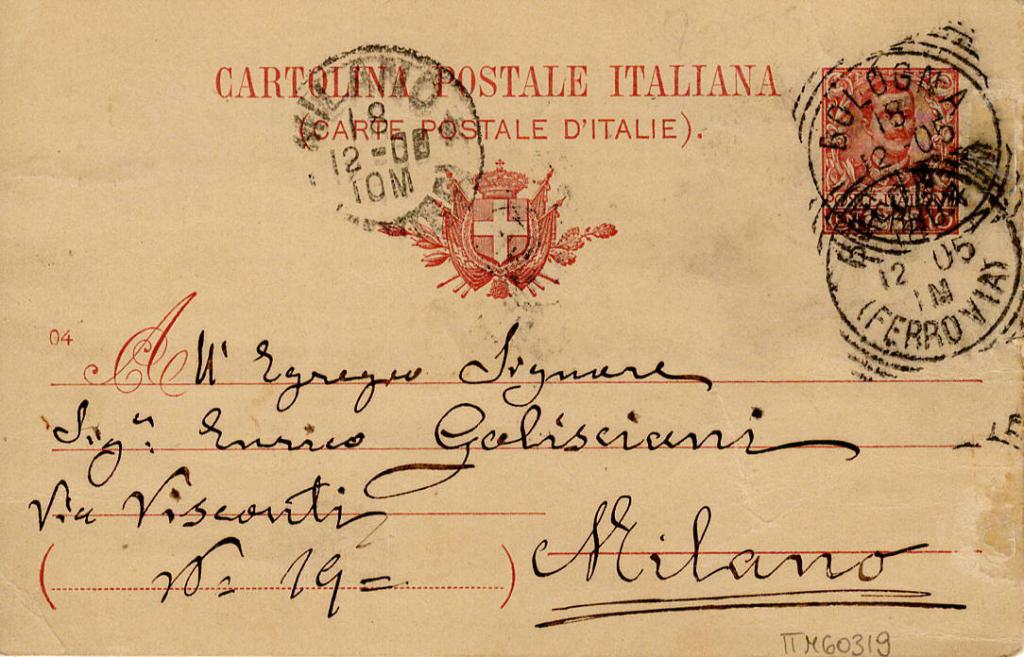 CARTOLINA POSTALE ITALIANA
(CARTE POSTALE D'ITALIE).
MILANO
18
12-05
10M
BOLOGNA
18
12 05
12 05
1M
(FERROVIA)
04
All' Egregio Signore
Sigr. Enrico Golisciani
Via Visconti
( No 19= )
Milano
ΠM60319